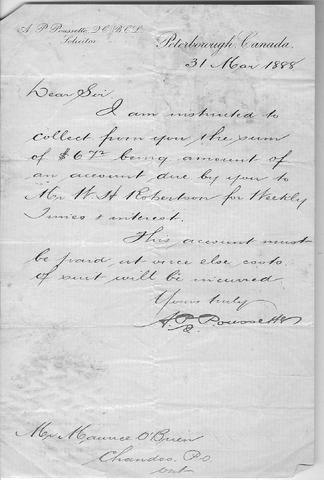 A. P. Poussette, Q.C. B.C.L.
Solicitor
Peterborough, Canada.
31 Mar 1888
Dear Sir
I am instructed to
collect from you the sum
of $6 72 being amount of
an account due by you to
Mr W. H. Robertson for Weekly
Times & interest.
This account must
be paid at once else costs
of suit will be incurred.
Yours truly
A. P. Poussette
Mr Maurice O'Brien
Chandos P.O
Ont